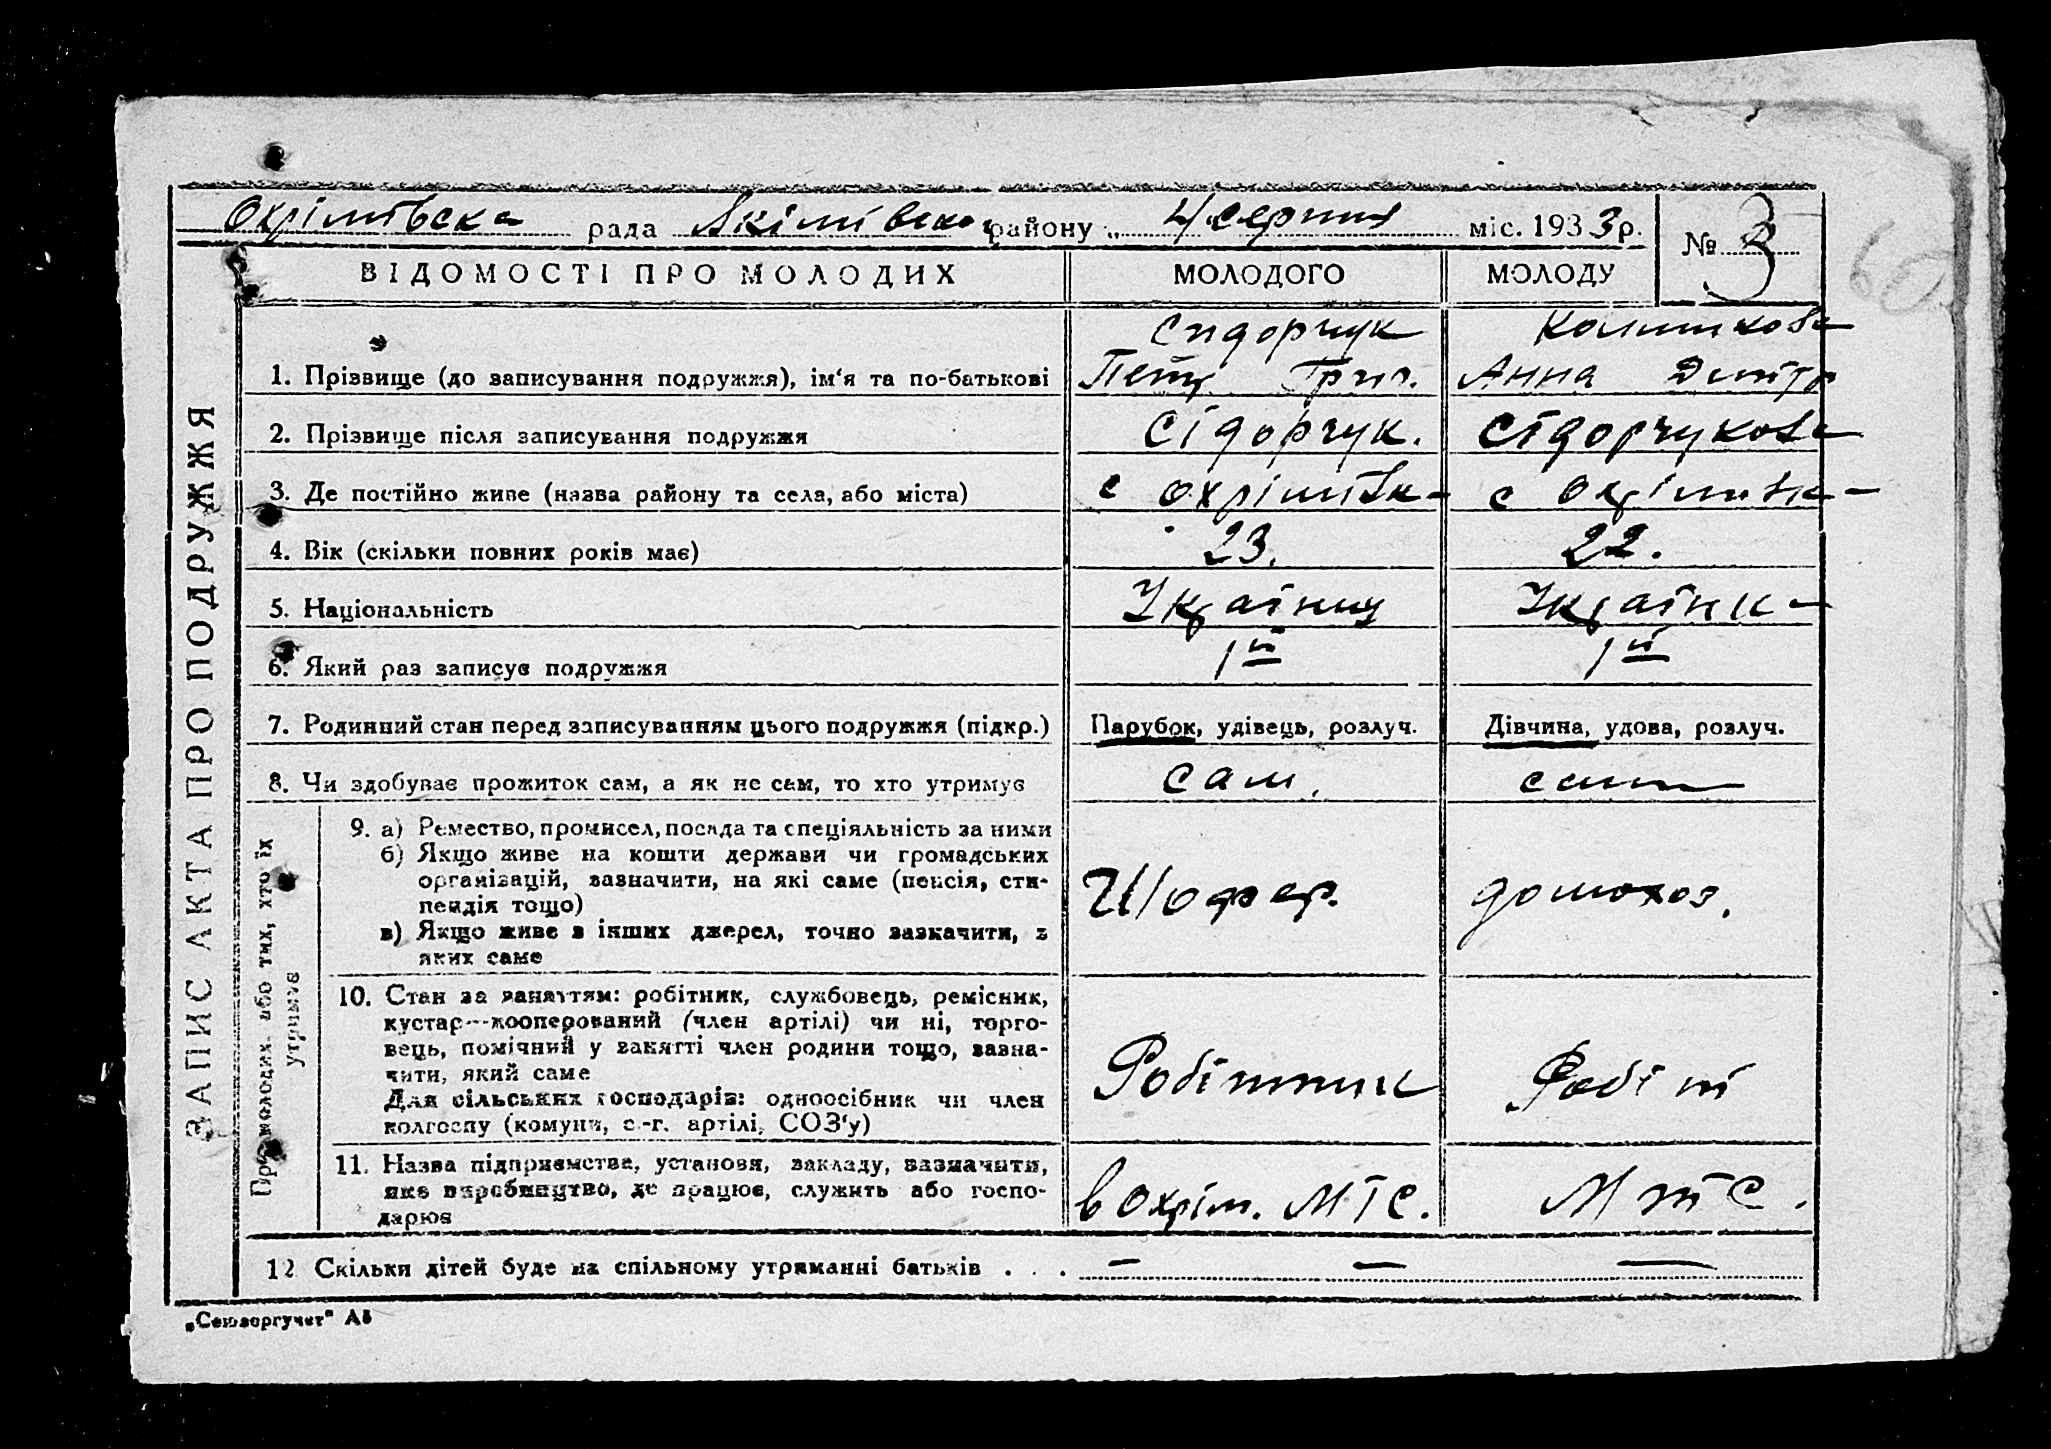 Охрімівська рада Якімівськог району „ 4 серпня міс. 1933 р. № 3
60
ВІДОМОСТІ ПРО МОЛОДИХ МОЛОДОГО МОЛОДУ
ЗАПИС АКТА ПРО ПОДРУЖЖЯ
Сидорчук
1. Прізвище (до записування подружжя), ім'я та по-батькові Петр Григ. Анна Дмитр
2. Прізвище після записування подружжя Сідорчук. Сідорчукова
3. Де постійно живе (назва району та села, або міста) с Охрімівка с Охрімівка
4. Вік (скільки повних років має) 23. 22.
5. Національність Українец Українка
6. Який раз записує подружжя 1й 1й
7. Родинний стан перед записуванням цього подружжя (підкр.) Парубок, удівець, розлуч. Дівчина, удова, розлуч.
8. Чи здобуває прожиток сам, а як не сам, то хто утримує сам. сама
Про молодих або тих, хто їх
утримує
9. а) Ремество, промисел, посада та спеціяльність за ними
б) Якщо живе на кошти держави чи громадських
організацій, зазначити, на які саме (пенсія, сти-
пендія тощо) Шофер. домохоз.
в) Якщо живе з інших джерел, точно зазначити, з
яких саме
10. Стан за заняттям: робітник, службовець, ремісник,
кустар—кооперований (член артілі) чи ні, торго-
вець, помічний у занятті член родини тощо, зазна-
чити, який саме Робітник Робіт
Для сільських господарів: одноосібник чи член
колгоспу (комуни, с.-г. артілі, СОЗ'у)
11. Назва підприємства, установи, закладу, зазначити,
яке виробництво, де працює, служить або госпо- в Охрім. МТС. МТС.
дарює
12 Скільки дітей буде на спільному утриманні батьків . . . — — —
„Союзоргучет" А5